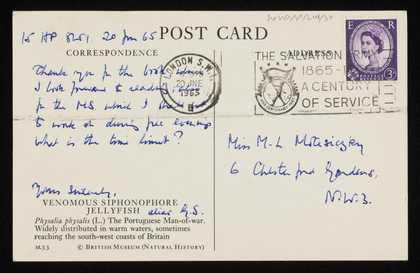 15 HP 8251 20 Jun 65
POST CARD
CORRESPONDENCE
ADDRESS
E R
3D
LONDON S.W.1
20 JNE
1965
B
THE SALVATION ARMY
1865-1965
A CENTURY
OF SERVICE
Thank you for the book which
I look forward to reading
for the MS which I
to work on during free evenings
what is the time limit?
Yours Sincerely,
Miss M-L
6 Chester
N.W.3.
VENOMOUS SIPHONOPHORE
JELLYFISH
Physalia physalis (L.) The Portuguese Man-of-war.
Widely distributed in warm waters, sometimes
reaching the south-west coasts of Britain
M.33 © BRITISH MUSEUM (NATURAL HISTORY)